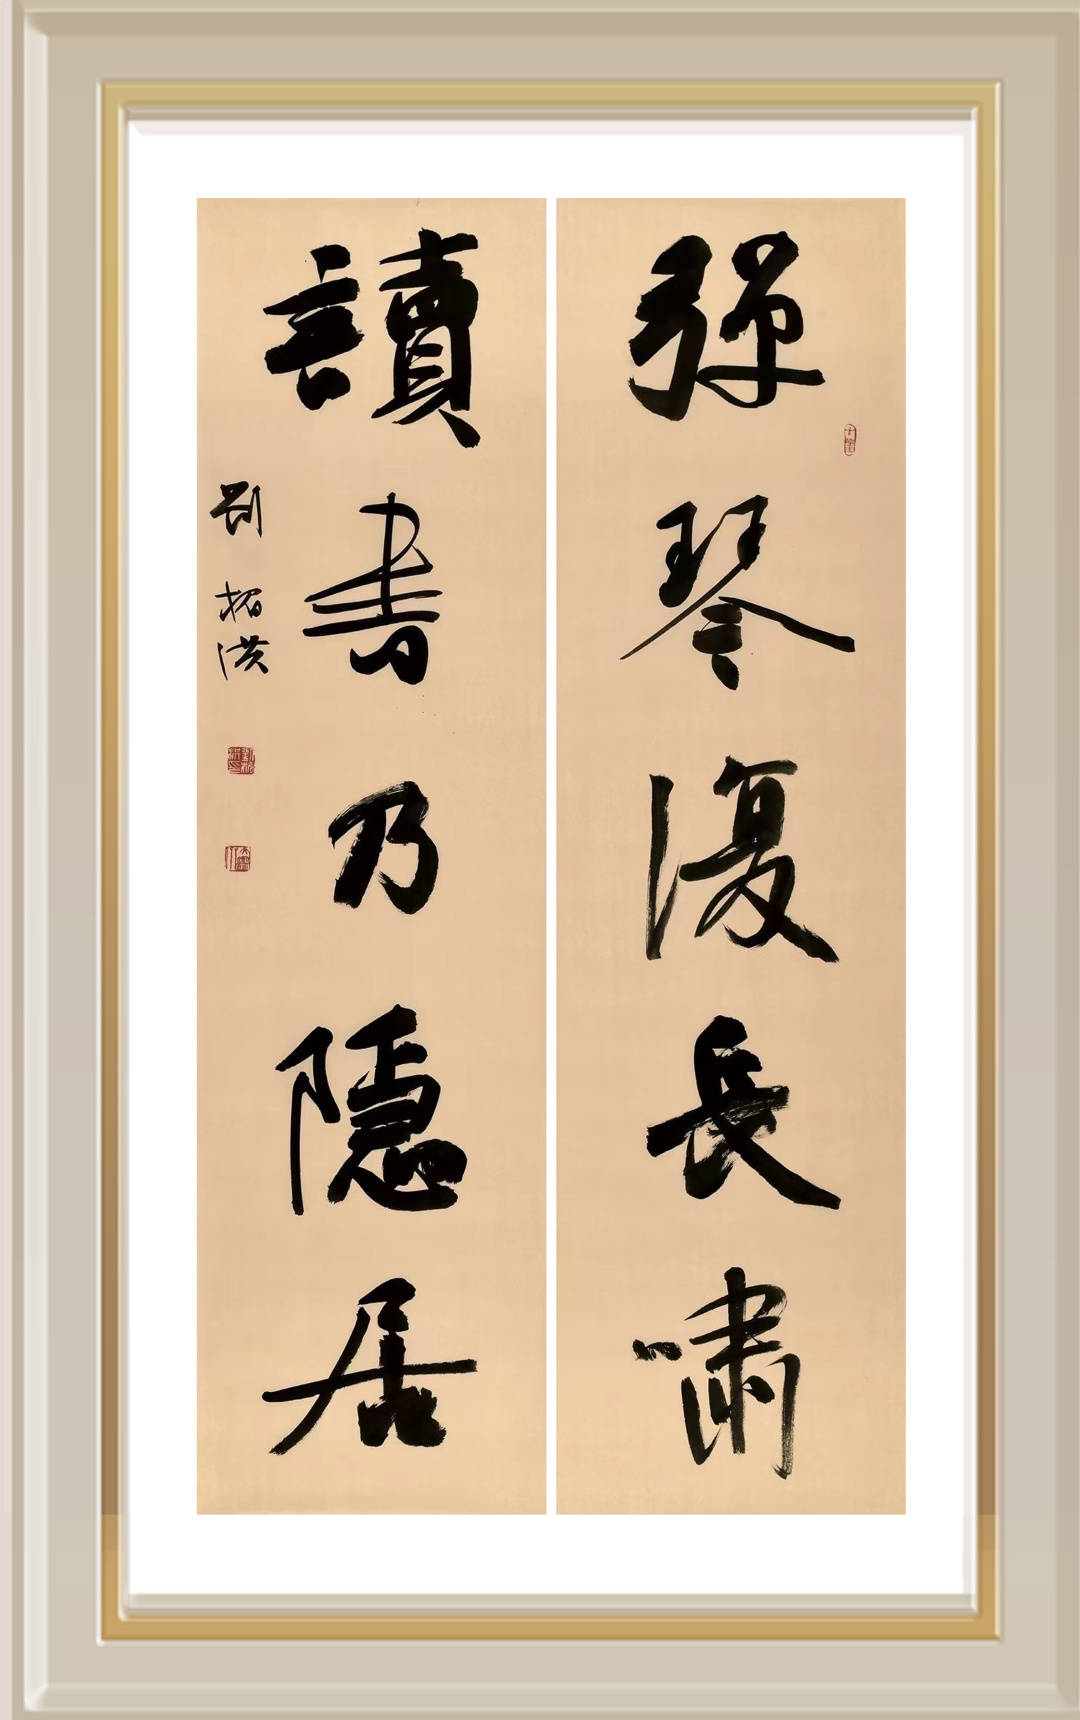 彈琴復長嘯
讀書乃隱居
劉柏洪